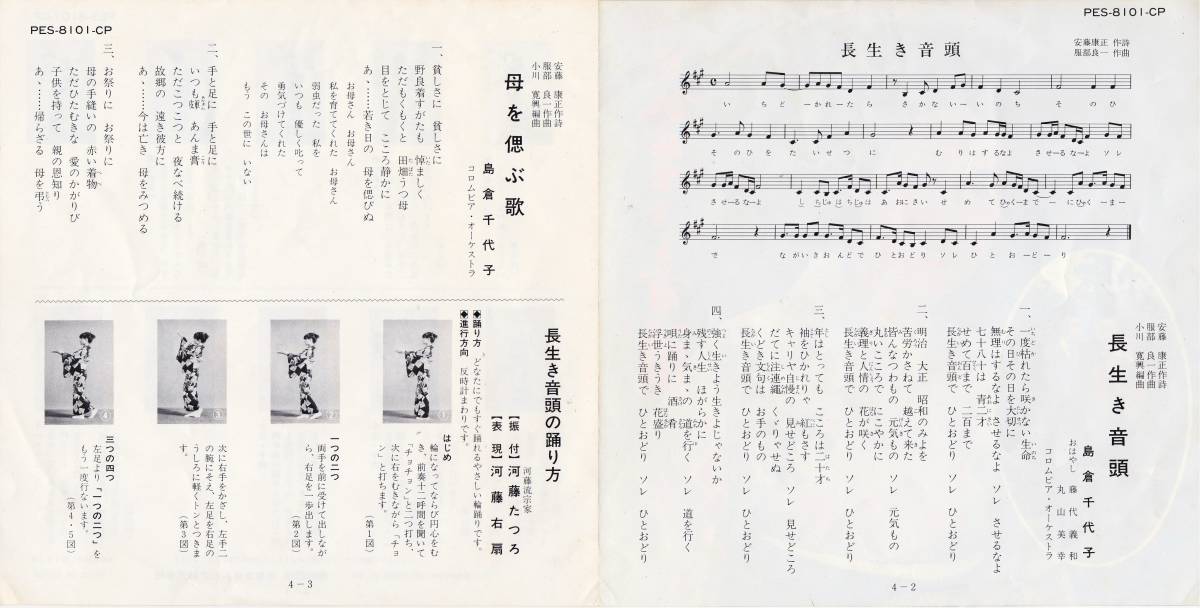 PES-8101-CP
長生き音頭
安藤康正 作詩
服部良一 作曲
いちどーかれーたら さかないーいのち そのひ
そのひを たいせつ に むりはするなよ させーるなーよ ソレ
させーるなーよ
ながいきおんどで ひとおどり ソレ ひとおーどーり
安藤 康正作詩
服部 良一作曲
小川 寛興編曲
長生き音頭
島倉千代子
おはやし 藤代義和
丸山美幸
コロムビア・オーケストラ
一、一度枯れたら咲かない生命
その日その日を大切に
無理はするなよ させるなよ ソレ させるなよ
七十八十は 青二才
せめて百まで 二百まで
長生き音頭で ひとおどり ソレ ひとおどり
二、明治 大正 昭和のみよを
苦労かさねて 越えて来た
皆んなつわもの 元気もの ソレ 元気もの
丸いこころで にこやかに
義理と人情の 花が咲く
長生き音頭で ひとおどり ソレ ひとおどり
三、年はとっても こころは二十才
袖をひかれりゃ 紅もさす
キャリヤ自慢の 見せどころ ソレ 見せどころ
だてに注連縄 くぐりゃせぬ
くどき文句は お手のもの
長生き音頭で ひとおどり ソレ ひとおどり
四、強く生きよう生きよじゃないか
残す人生 ほがらかに
身まゝ気まゝの 道を行く ソレ 道を行く
唄に踊りに 酒肴
浮世うきうき 花盛り
長生き音頭で ひとおどり ソレ ひとおどり
4-2
PES-8101-CP
安藤 康正作詩
服部 良一作曲
小川 寛興編曲
母を偲ぶ歌
島倉千代子
コロムビア・オーケストラ
一、貧しさに 貧しさに
野良着すがたも 悼ましく
ただもくもくと 田畑うつ母
目をとじて こころ静かに
あゝ……若き日の 母を偲びぬ
お母さん お母さん
私を育ててくれた お母さん
弱虫だった 私を
いつも 優しく叱って
勇気づけてくれた
その お母さんは
もう この世に いない
二、手と足に 手と足に
いつも皹 あんま膏
ただこつこつと 夜なべ続ける
故郷の 遠き彼方に
あゝ……今は亡き 母をみつめる
三、お祭りに お祭りに
母の手縫いの 赤い着物
ただひたむきな 愛のかがりび
子供を持って 親の恩知り
あゝ……帰らざる 母を弔う
長生き音頭の踊り方
河藤流宗家
【振付】河藤たつろ
【表現】河藤右扇
◆踊り方 どなたにでもすぐ踊れるやさしい輪踊りです。
◆進行方向 反時計まわりです。
①
はじめ
輪になってならび円心をむ
き、前奏十二呼間を聞いて
「チョチョン」と二つ打ち、
次に右をむきながら「チョ
ン」と打ちます。
（第1図）
②
一つの二つ
両手を前に受けて出しなが
ら、右足を一歩出します。
（第2図）
③
次に右手をかざし、左手二
の腕にそえ、左足を右足の
うしろに軽くトンとつきま
す。
（第3図）
④
三つの四つ
左足より「一つの二つ」を
もう一度行ないます。
（第4・5図）
4-3